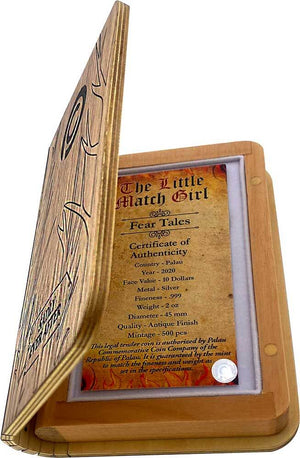 The Little
Match Girl
Fear Tales
Certificate of
Authenticity
Country - Palau
Year - 2020
Face Value - 10 Dollars
Metal - Silver
Fineness - .999
Weight - 2 oz
Diameter - 45 mm
Quality - Antique Finish
Mintage - 500 pcs
This legal tender coin is authorized by Palau
Commemorative Coin Company of the
Republic of Palau. It is guaranteed by the mint
to match the fineness and weight as
set in the specifications.